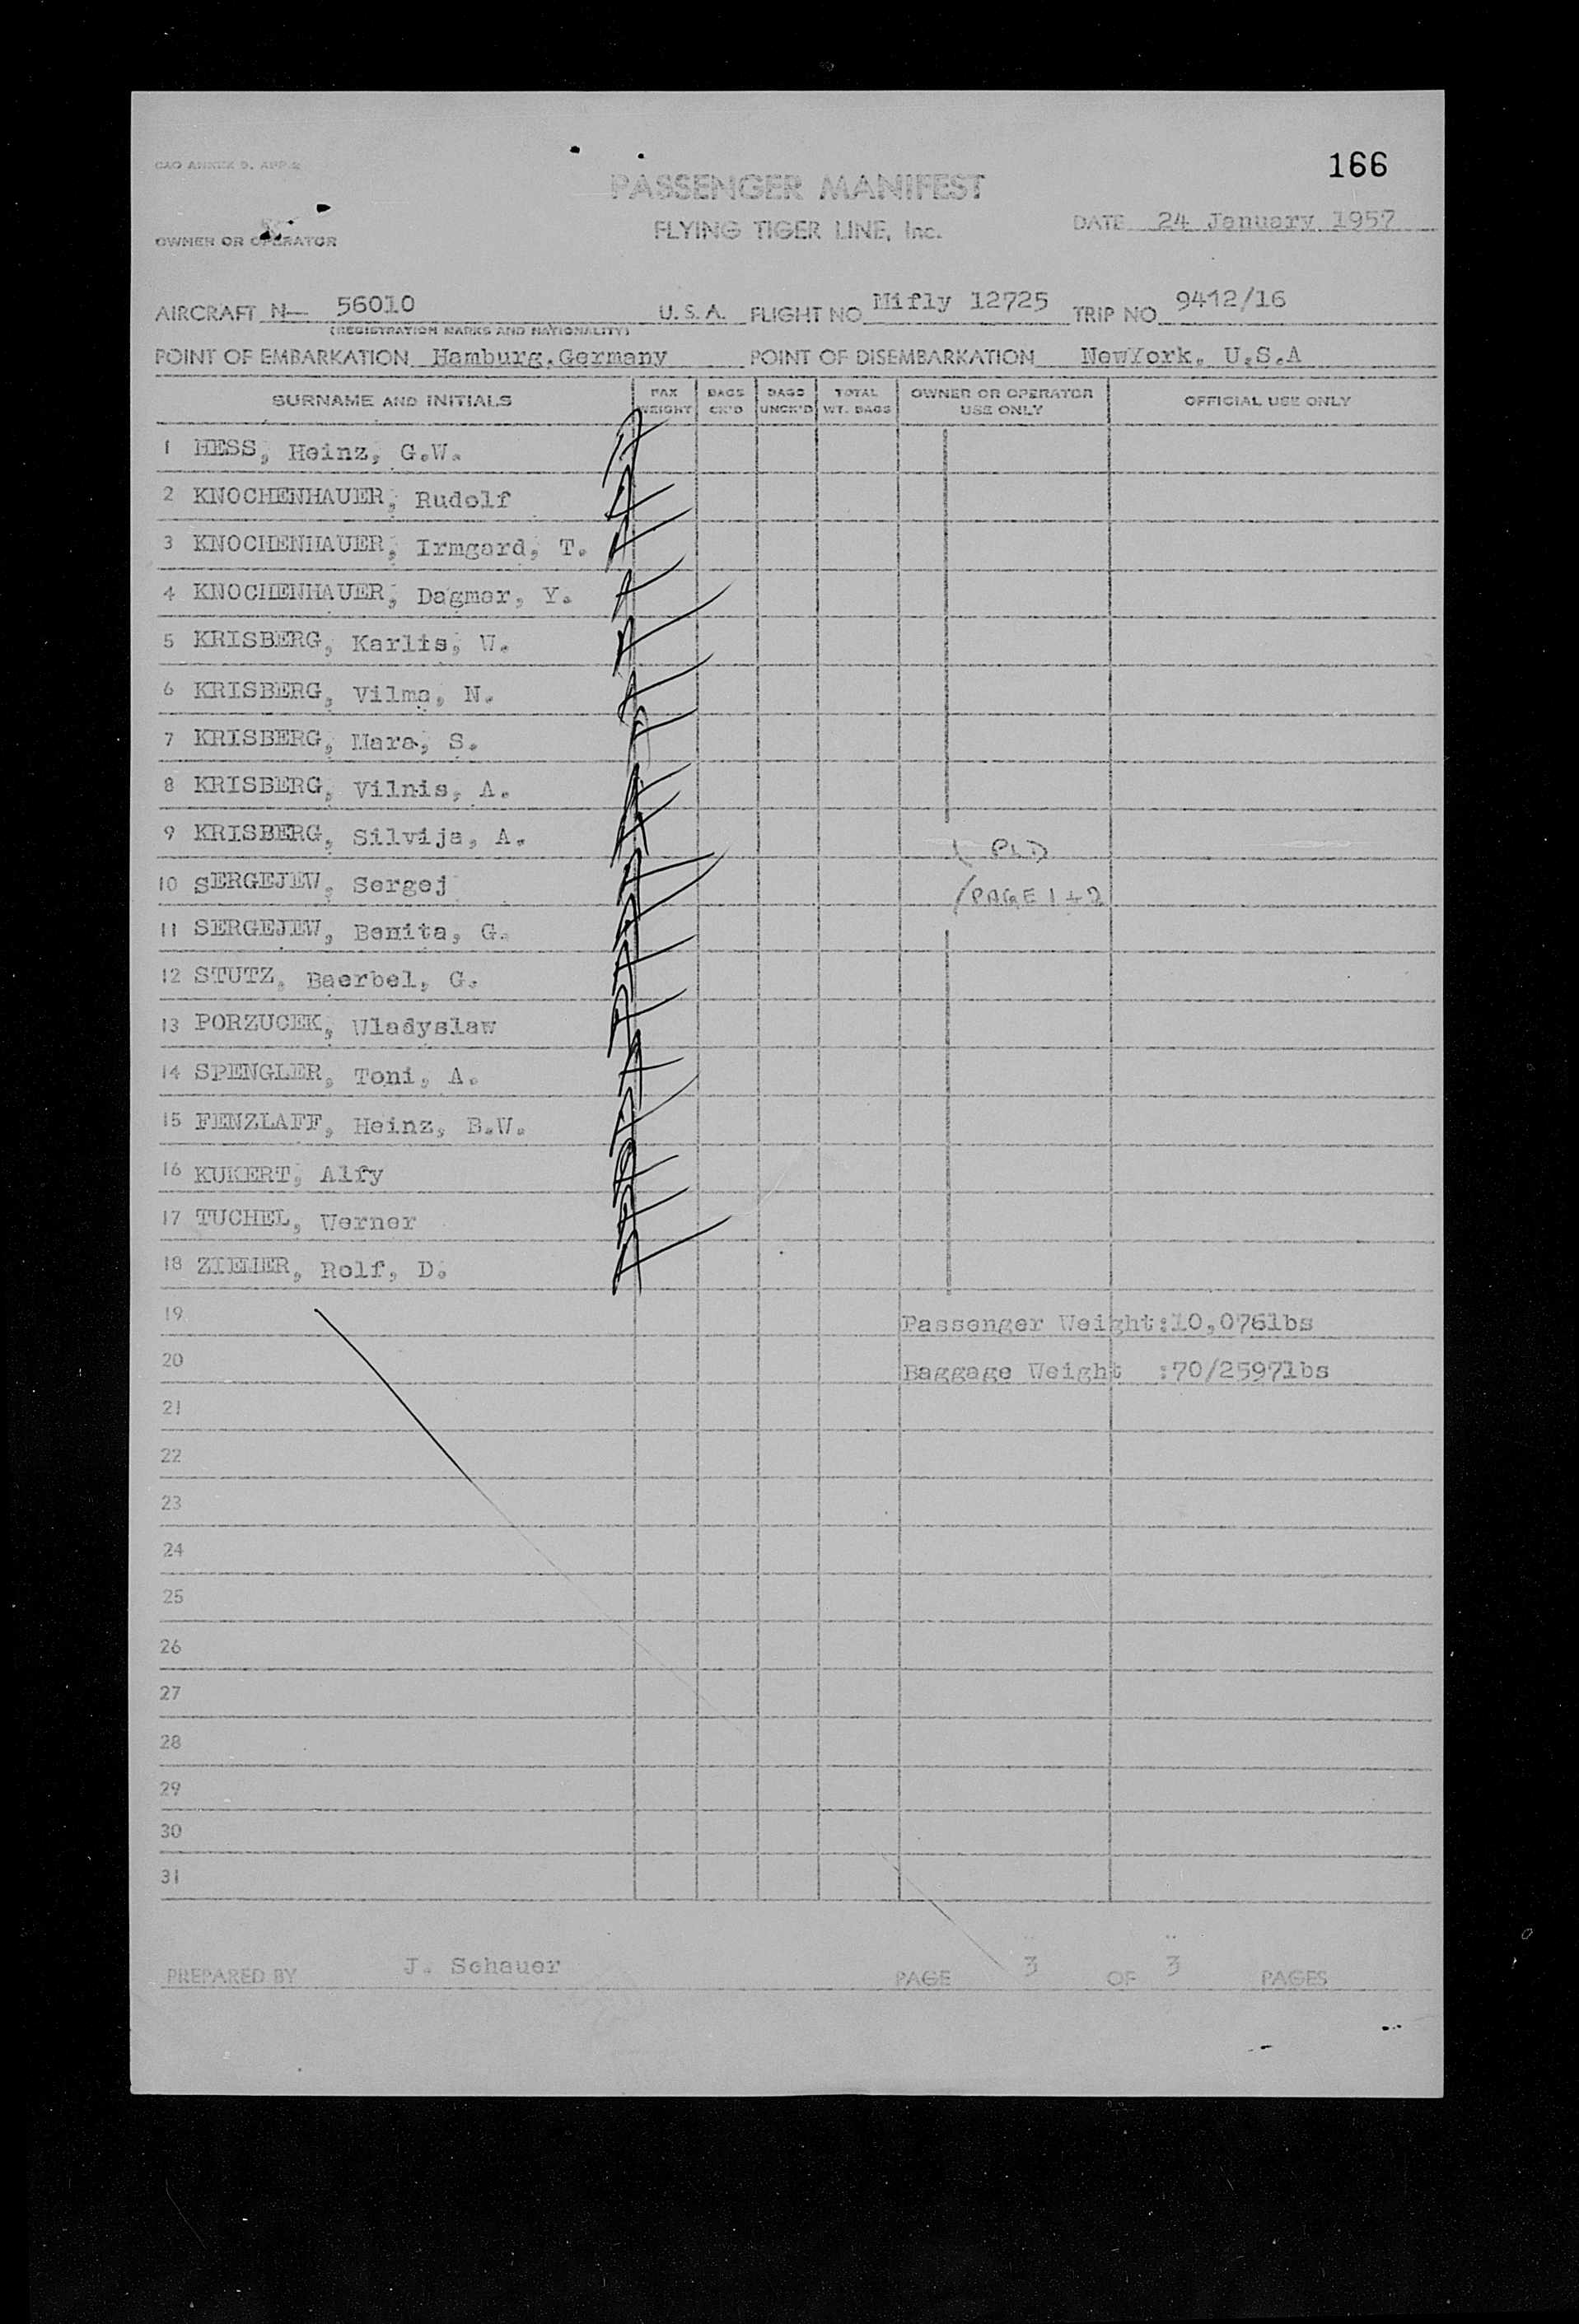 166
CAO ANNEX 9, APP 2
PASSENGER MANIFEST
FLYING TIGER LINE, Inc.
DATE 24 January 1957
OWNER OR OPERATOR
AIRCRAFT N— 56010 U. S. A. FLIGHT NO Mifly 12725 TRIP NO. 9412/16
(REGISTRATION MARKS AND NATIONALITY)
POINT OF EMBARKATION Hamburg, Germany POINT OF DISEMBARKATION NewYork, U.S.A
SURNAME AND INITIALS PAX WEIGHT BAGS CK'D BAGS UNCK'D TOTAL WT. BAGS OWNER OR OPERATOR USE ONLY OFFICIAL USE ONLY
1 HESS, Heinz, G.W.
2 KNOCHENHAUER, Rudolf
3 KNOCHENHAUER, Irmgard, T.
4 KNOCHENHAUER, Dagmar, Y.
5 KRISBERG, Karlis, W.
6 KRISBERG, Vilma, N.
7 KRISBERG, Mara, S.
8 KRISBERG, Vilnis, A.
9 KRISBERG, Silvija, A. PLD
10 SERGEJEW, Sergej PAGE 1 + 2
11 SERGEJEW, Benita, G.
12 STUTZ, Baerbel, G.
13 PORZUCEK, Wladyslaw
14 SPENGLER, Toni, A.
15 FENZLAFF, Heinz, B.W.
16 KUKERT, Alfy
17 TUCHEL, Werner
18 ZIEMER, Rolf, D.
19 Passenger Weight:10,076lbs
20 Baggage Weight :70/2597lbs
21
22
23
24
25
26
27
28
29
30
31
PREPARED BY J. Schauer PAGE 3 OF 3 PAGES